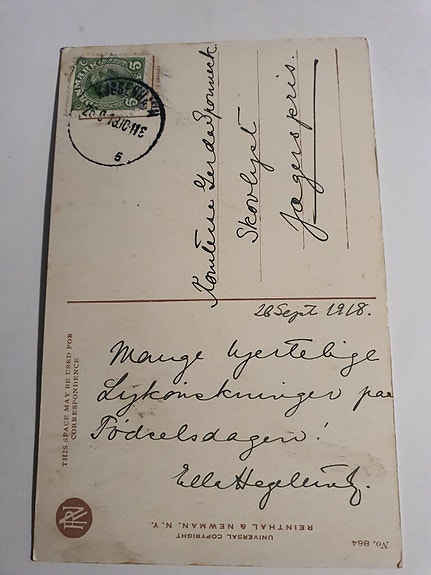 DANMARK
5 5
KJØBENHAVN
5
Komtesse Gerda Sponneck.
Skovlyst
Jægerspris.
26 Sept 1918.
Mange hjertelige
Lykønskninger paa
Fødselsdagen!
THIS SPACE MAY BE USED FOR
CORRESPONDENCE
UNIVERSAL COPYRIGHT
REINTHAL & NEWMAN, N.Y.
No. 864
RN